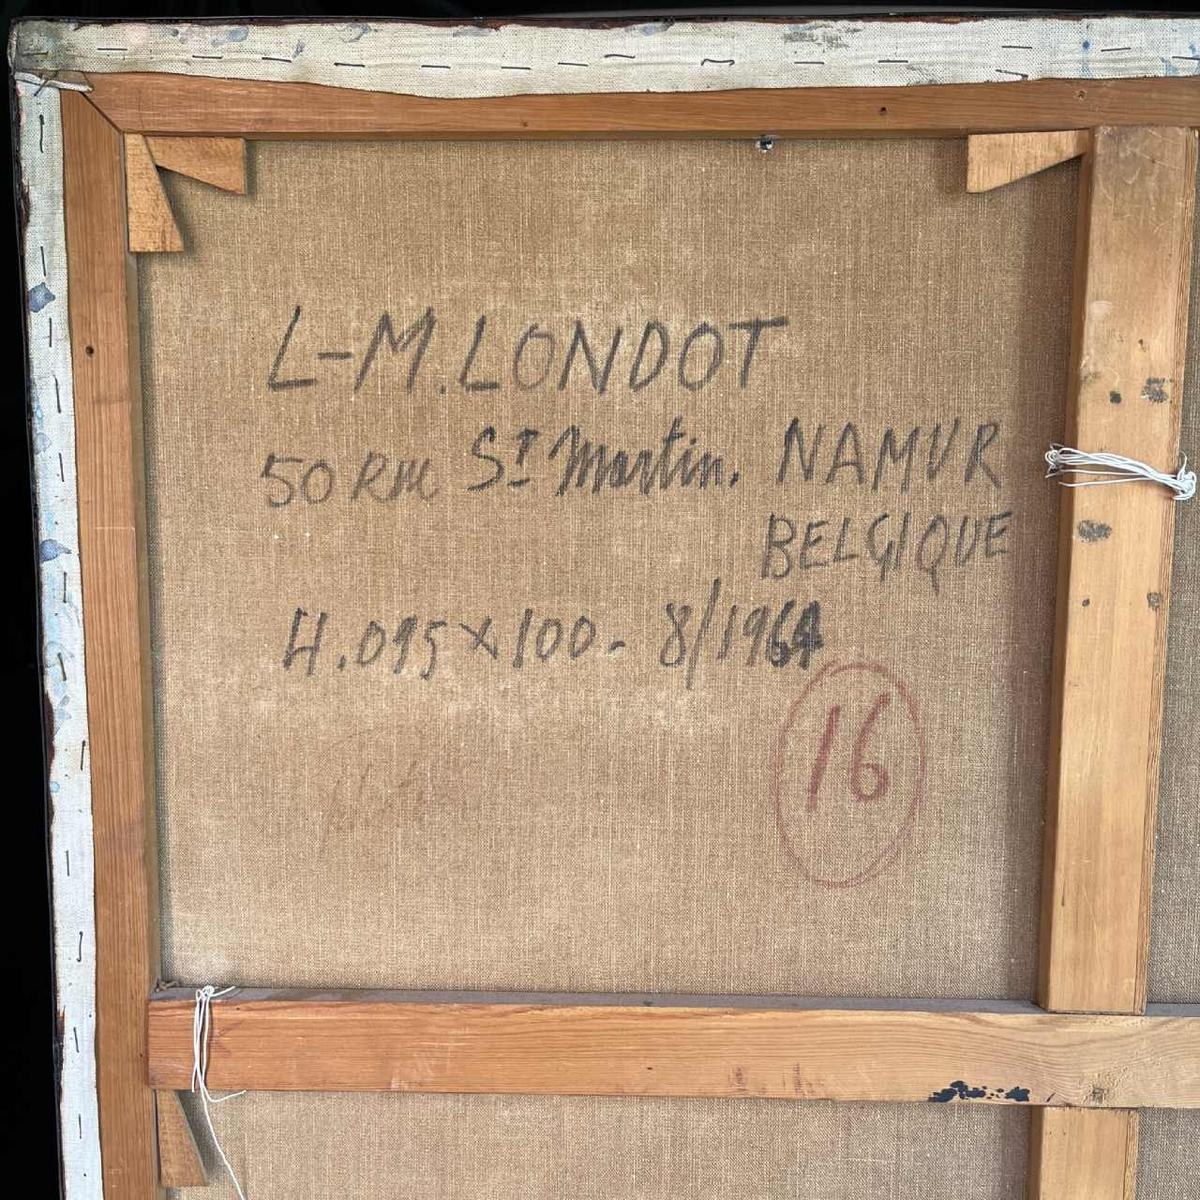 L-M. LONDOT
50 RUE St Martin. NAMUR
BELGIQUE
H.095 x 100 - 8/1964
16